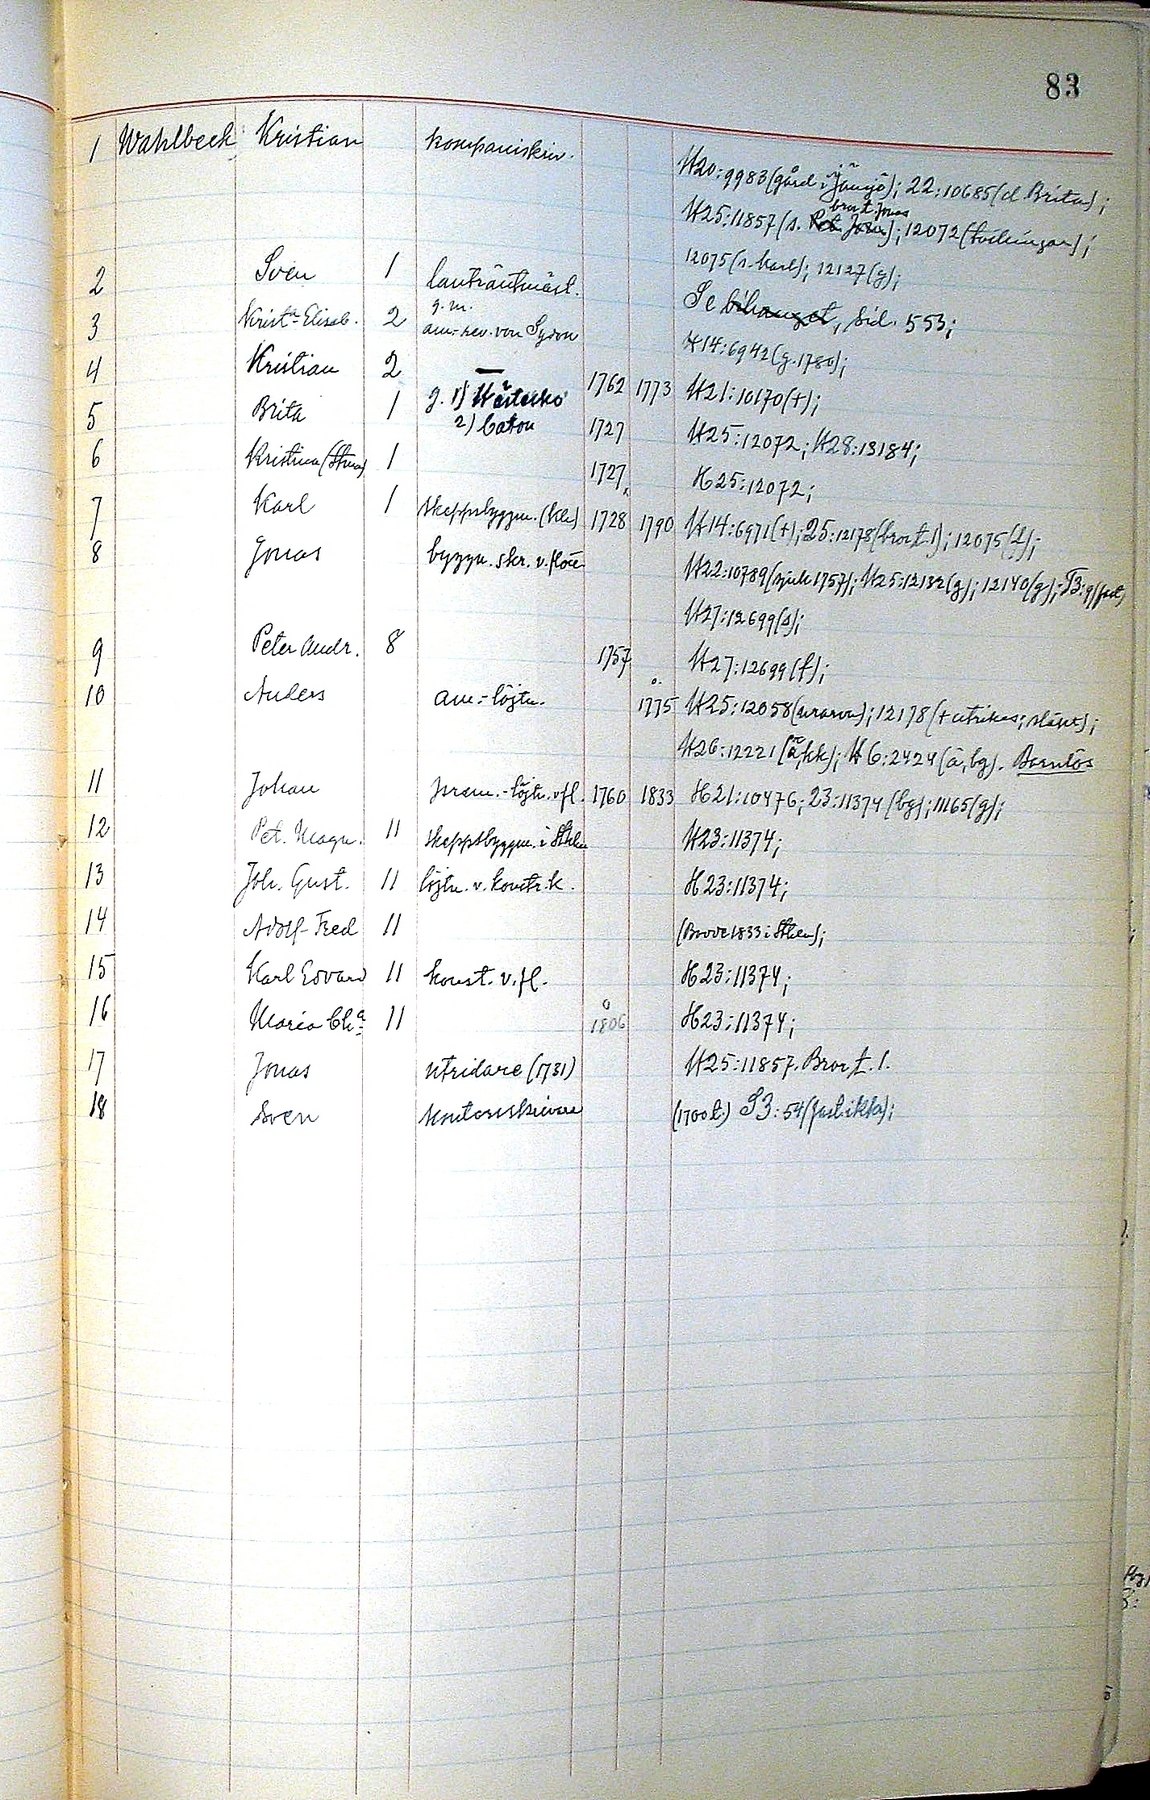 83
1 Wahlbeck Kristian kompaniskriv. H20:9983 (gård i Jämjö); 22:10685 (d. Brita);
H25:11857 (s. bror t. Jonas); 12072 (tvillingar);
12075 (s. Karl); 12127 (g);
2 Sven 1 lanträntmäst. Se bihanget, sid. 553;
3 Krist:a Elisab. 2 g.m. am:-rev. von Sydow H14:6942 (g. 1780);
4 Kristian 2 — 1762 1773 H21:10170 (+);
5 Brita 1 g. 1) 2) Caton 1727 H25:12072; H28:13184;
6 Kristina 1 1727 H25:12072;
7 Karl 1 skeppsbyggm. 1728 1790 H14:6971 (+); 25:12178 (bror t. 1); 12075 (f);
8 Jonas byggn. skr. v. flott H22:10789 (sjuk 1757); H25:12132 (g); 12140 (g);
H27:12699 (s);
9 Peter Andr. 8 1757 H27:12699 (f);
10 Anders am:-löjtn. 1775 H25:12058 12178 (+ utrikes; släkt);
H26:12221 H6:2424 (å, bg). Barnlös
11 Johan prem.-löjtn. v fl. 1760 1833 H21:10476; 23:11374 (bg); 11165 (g);
12 Pet. Magn. 11 skeppsbyggm. i Sthlm H23:11374;
13 Joh. Gust. 11 löjtn. v. konstr.k. H23:11374;
14 Adolf Fred 11 (Bodde 1833 i Sthlm);
15 Karl Edvard 11 konst. v. fl. H23:11374;
16 Maria Ch:a 11 1806 H23:11374;
17 Jonas utridare (1731) H25:11857. Bror t. 1.
18 Sven kontorsskrivare (1700t) S3:54